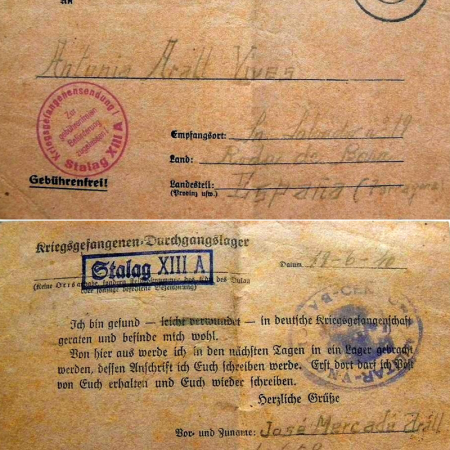 An
Antonia Arall Vives
Kriegsgefangenensendung!
Zur
gebührenfreien
Beförderung
zugelassen!
Stalag XIII A
Empfangsort: 9
Gebührenfrei!
Land: Roda de
Landesteil: España (
(Provinz usw.)
Kriegsgefangenen-Durchgangslager
Stalag XIII A
Datum 18-6-40
(Keine Ortsangabe, sondern des Dulag
Ich bin gesund — leicht verwundet — in deutsche Kriegsgefangenschaft
geraten und befinde mich wohl.
Von hier aus werde ich in den nächsten Tagen in ein Lager gebracht
werden, dessen Anschrift ich Euch schreiben werde. Erst dort darf ich Post
von Euch erhalten und Euch wieder schreiben.
Herzliche Grüße
Vor- und Zuname: José Mercadé Aráll